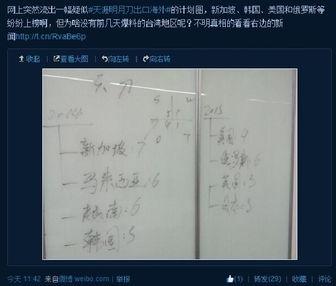 网上突然流出一幅疑似#天涯明月刀出口海外#的计划图，新加坡、韩国、美国和俄罗斯等
纷纷上榜啊，但为啥没有前几天爆料的台湾地区呢？不明真相的看看右边的新
闻http://t.cn/RvaBe6p
收起 查看大图 向左转 向右转
天刀
新加坡：7
马来西亚：6
越南：6
韩国：5
2015
美国：9
俄罗斯：6
英国：5
今天 11:42 来自微博 weibo.com | 举报
(1) | 转发(29) | 收藏 | 评论